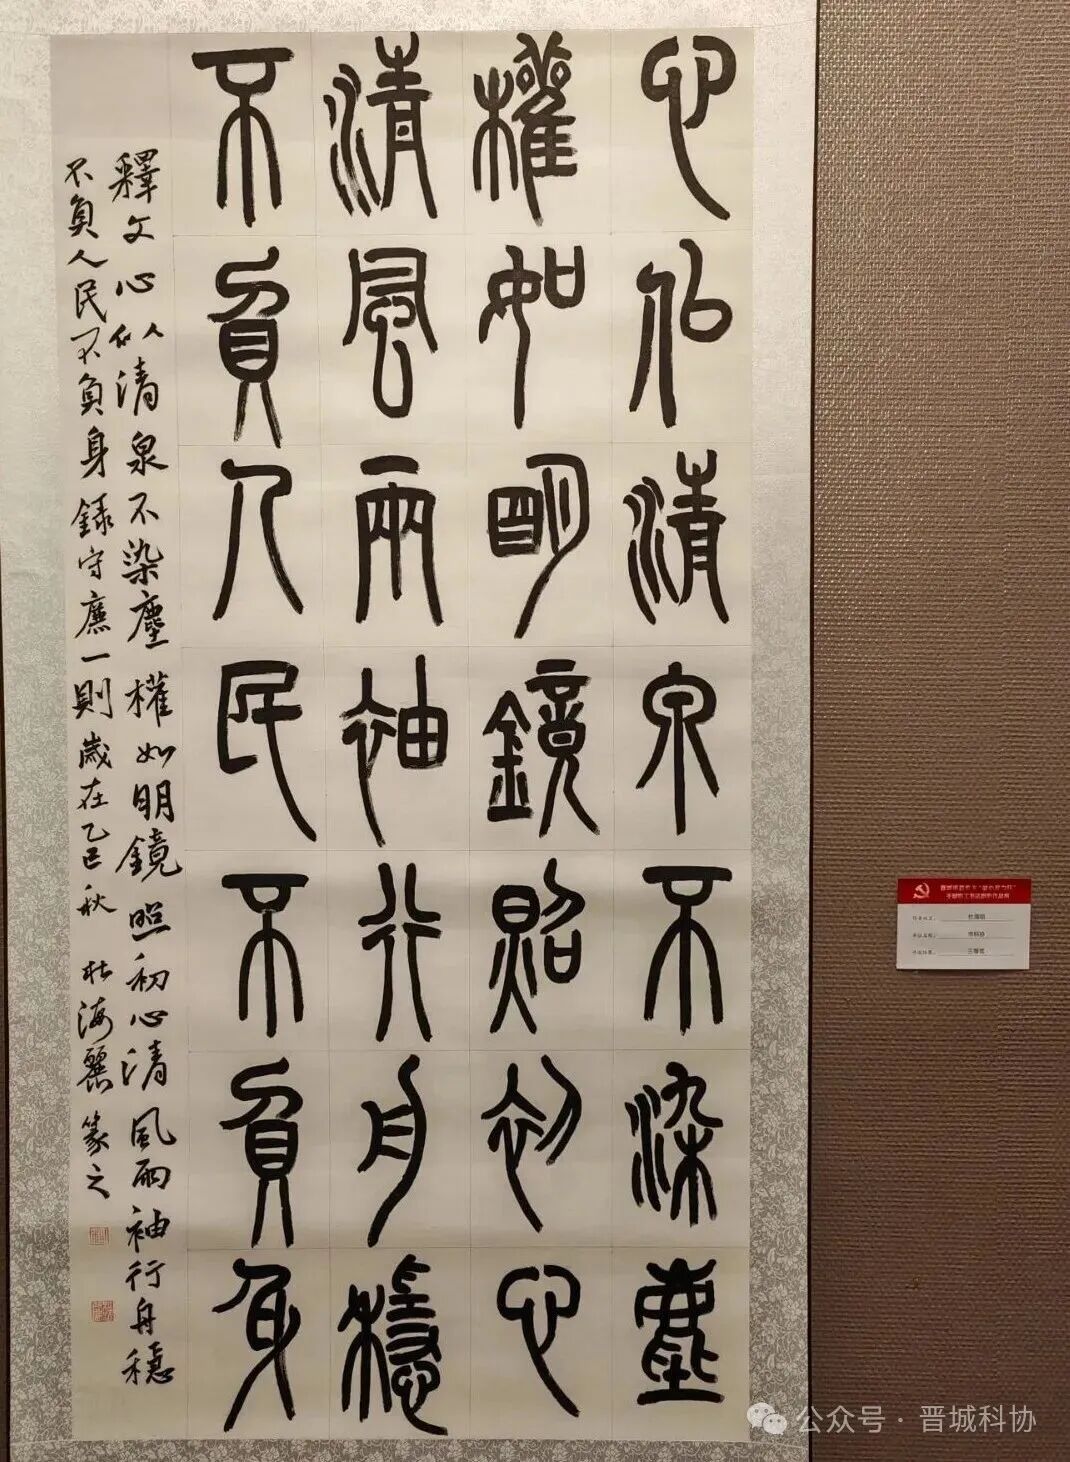 心似清泉不染塵
權如明鏡照初心
清風兩袖行舟穩
不負人民不負身
釋文心似清泉不染塵權如明鏡照初心清風兩袖行舟穩
不負人民不負身錄守廉一則歲在乙巳秋杜海麗篆之
公众号·晋城科协